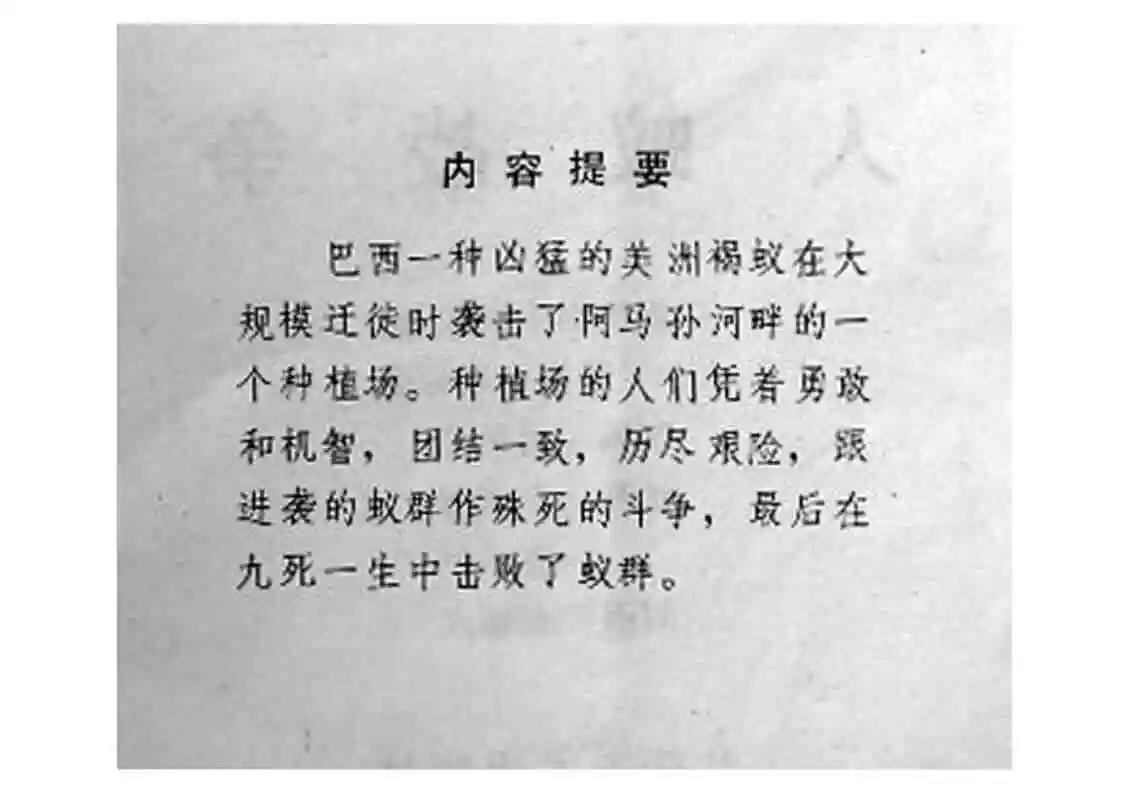 内容提要
巴西一种凶猛的美洲褐蚁在大
规模迁徒时袭击了阿马孙河畔的一
个种植场。种植场的人们凭着勇敢
和机智，团结一致，历尽艰险，跟
进袭的蚁群作殊死的斗争，最后在
九死一生中击败了蚁群。